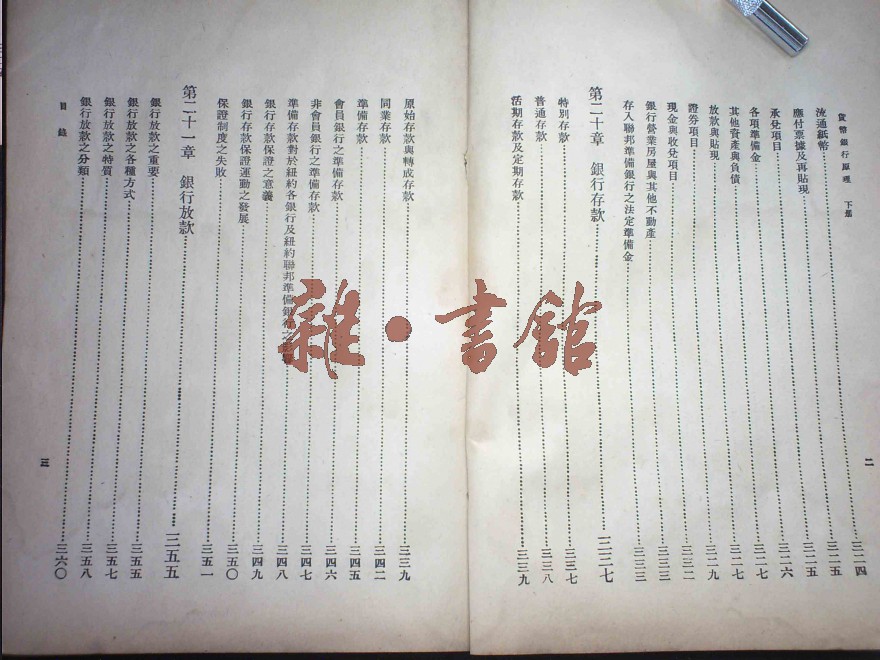 貨幣銀行原理 下册
流通紙幣 三二四
應付票據及再貼現 三二五
承兌項目 三二五
各項準備金 三二六
其他資產與負債 三二七
放款與貼現 三二七
證券項目 三二九
現金與收兌項目 三三二
銀行營業房屋與其他不動產 三三三
存入聯邦準備銀行之法定準備金 三三三
第二十章 銀行存款 三三七
特別存款 三三七
普通存款 三三八
活期存款及定期存款 三三九
二
原始存款與轉成存款 三三九
同業存款 三四二
準備存款 三四五
會員銀行之準備存款 三四六
非會員銀行之準備存款 三四七
準備存款對於紐約各銀行及紐約聯邦準備銀行之 三四八
銀行存款保證之意義 三四九
銀行存款保證運動之發展 三五〇
保證制度之失敗 三五一
第二十一章 銀行放款 三五五
銀行放款之重要 三五五
銀行放款之各種方式 三五七
銀行放款之特質 三五八
銀行放款之分類 三六〇
目錄
三
雜·書館